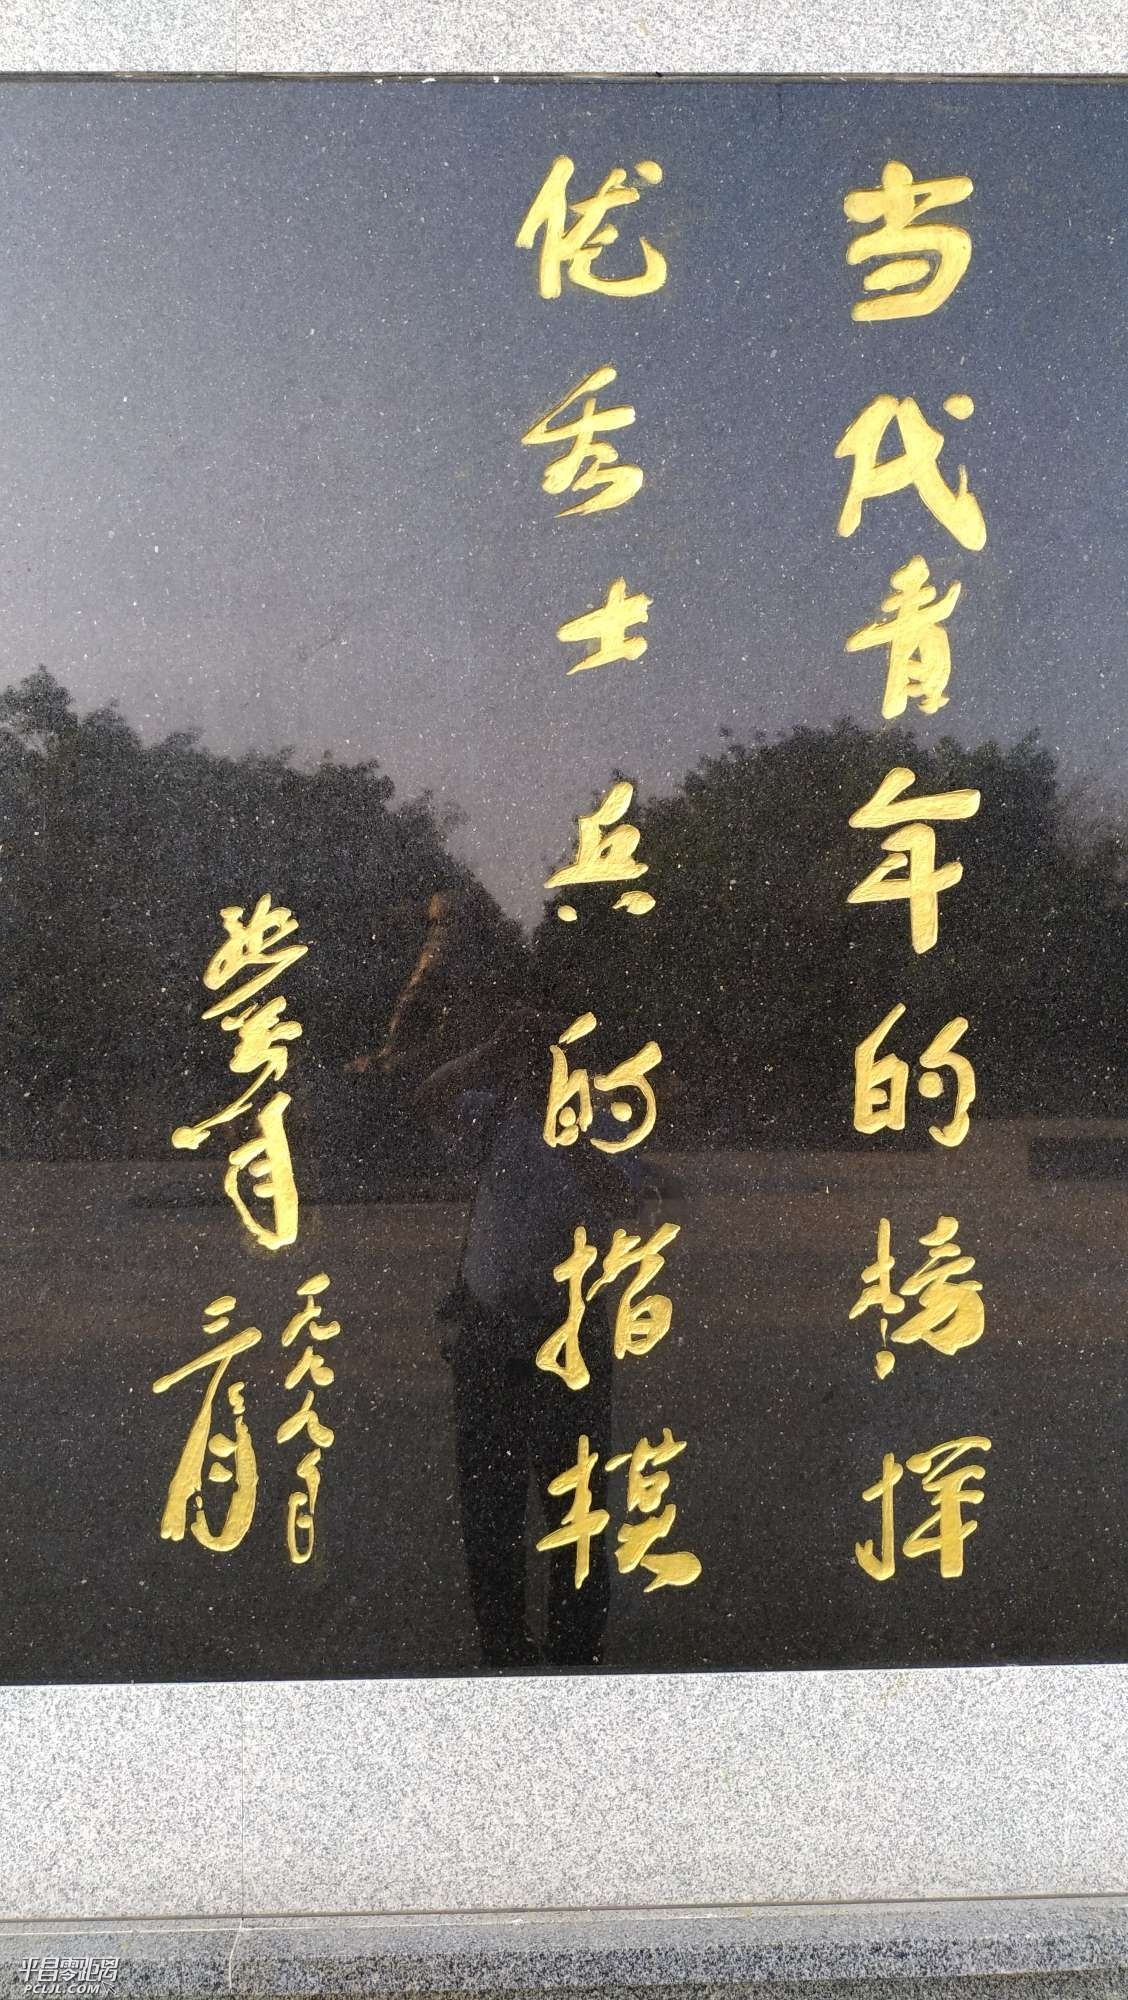 当代青年的榜样
优秀士兵的楷模
一九九九年
三月
平昌零距离
PCLJL.COM